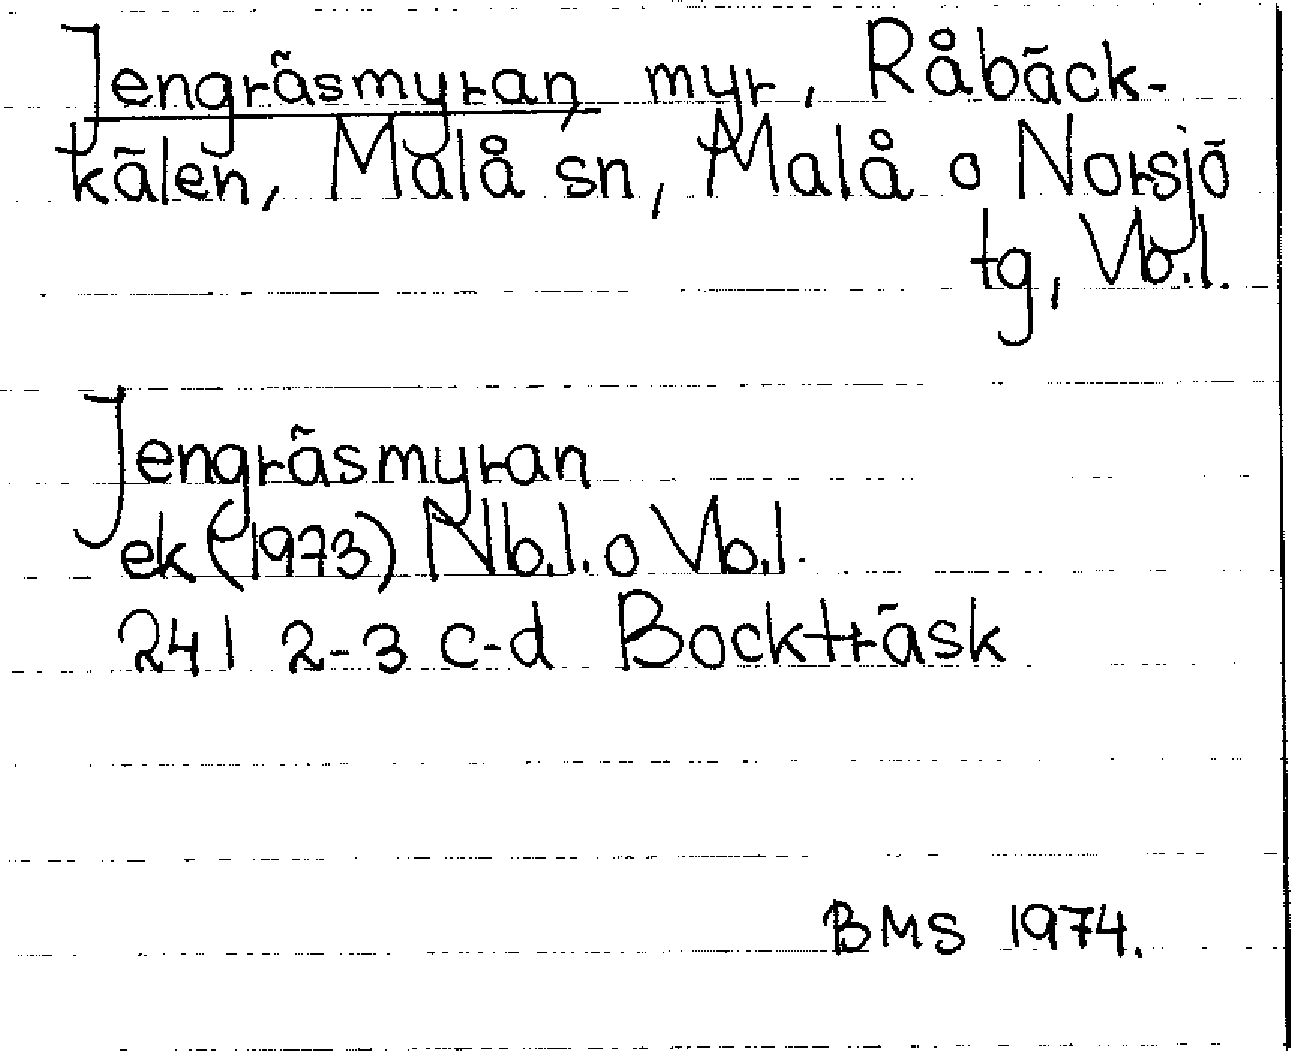 Jengräsmyran, myr, Råbäck-
kälen, Malå sn, Malå o Norsjö
tg, Vb.l.
Jengräsmyran
ek (1973) Nb.l. o Vb.l.
241 2-3 c-d Bockträsk
BMS 1974.